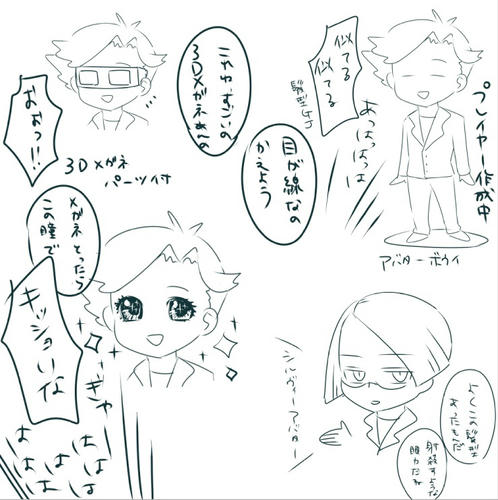 プレイヤー作成中
似てる
似てる
髪型GJ
あっはっはっは
アバターボウイ
目が線なの
かえよう
これやすごいの
3Dメガネあんの
おおっ!!
3Dメガネ
パーツ付
メガネとったら
この瞳で
キッショいな
ぎゃー
はははははは
シルヴァーアバター
よくこの髪型
あったもんだ
射殺すような
眼力だね